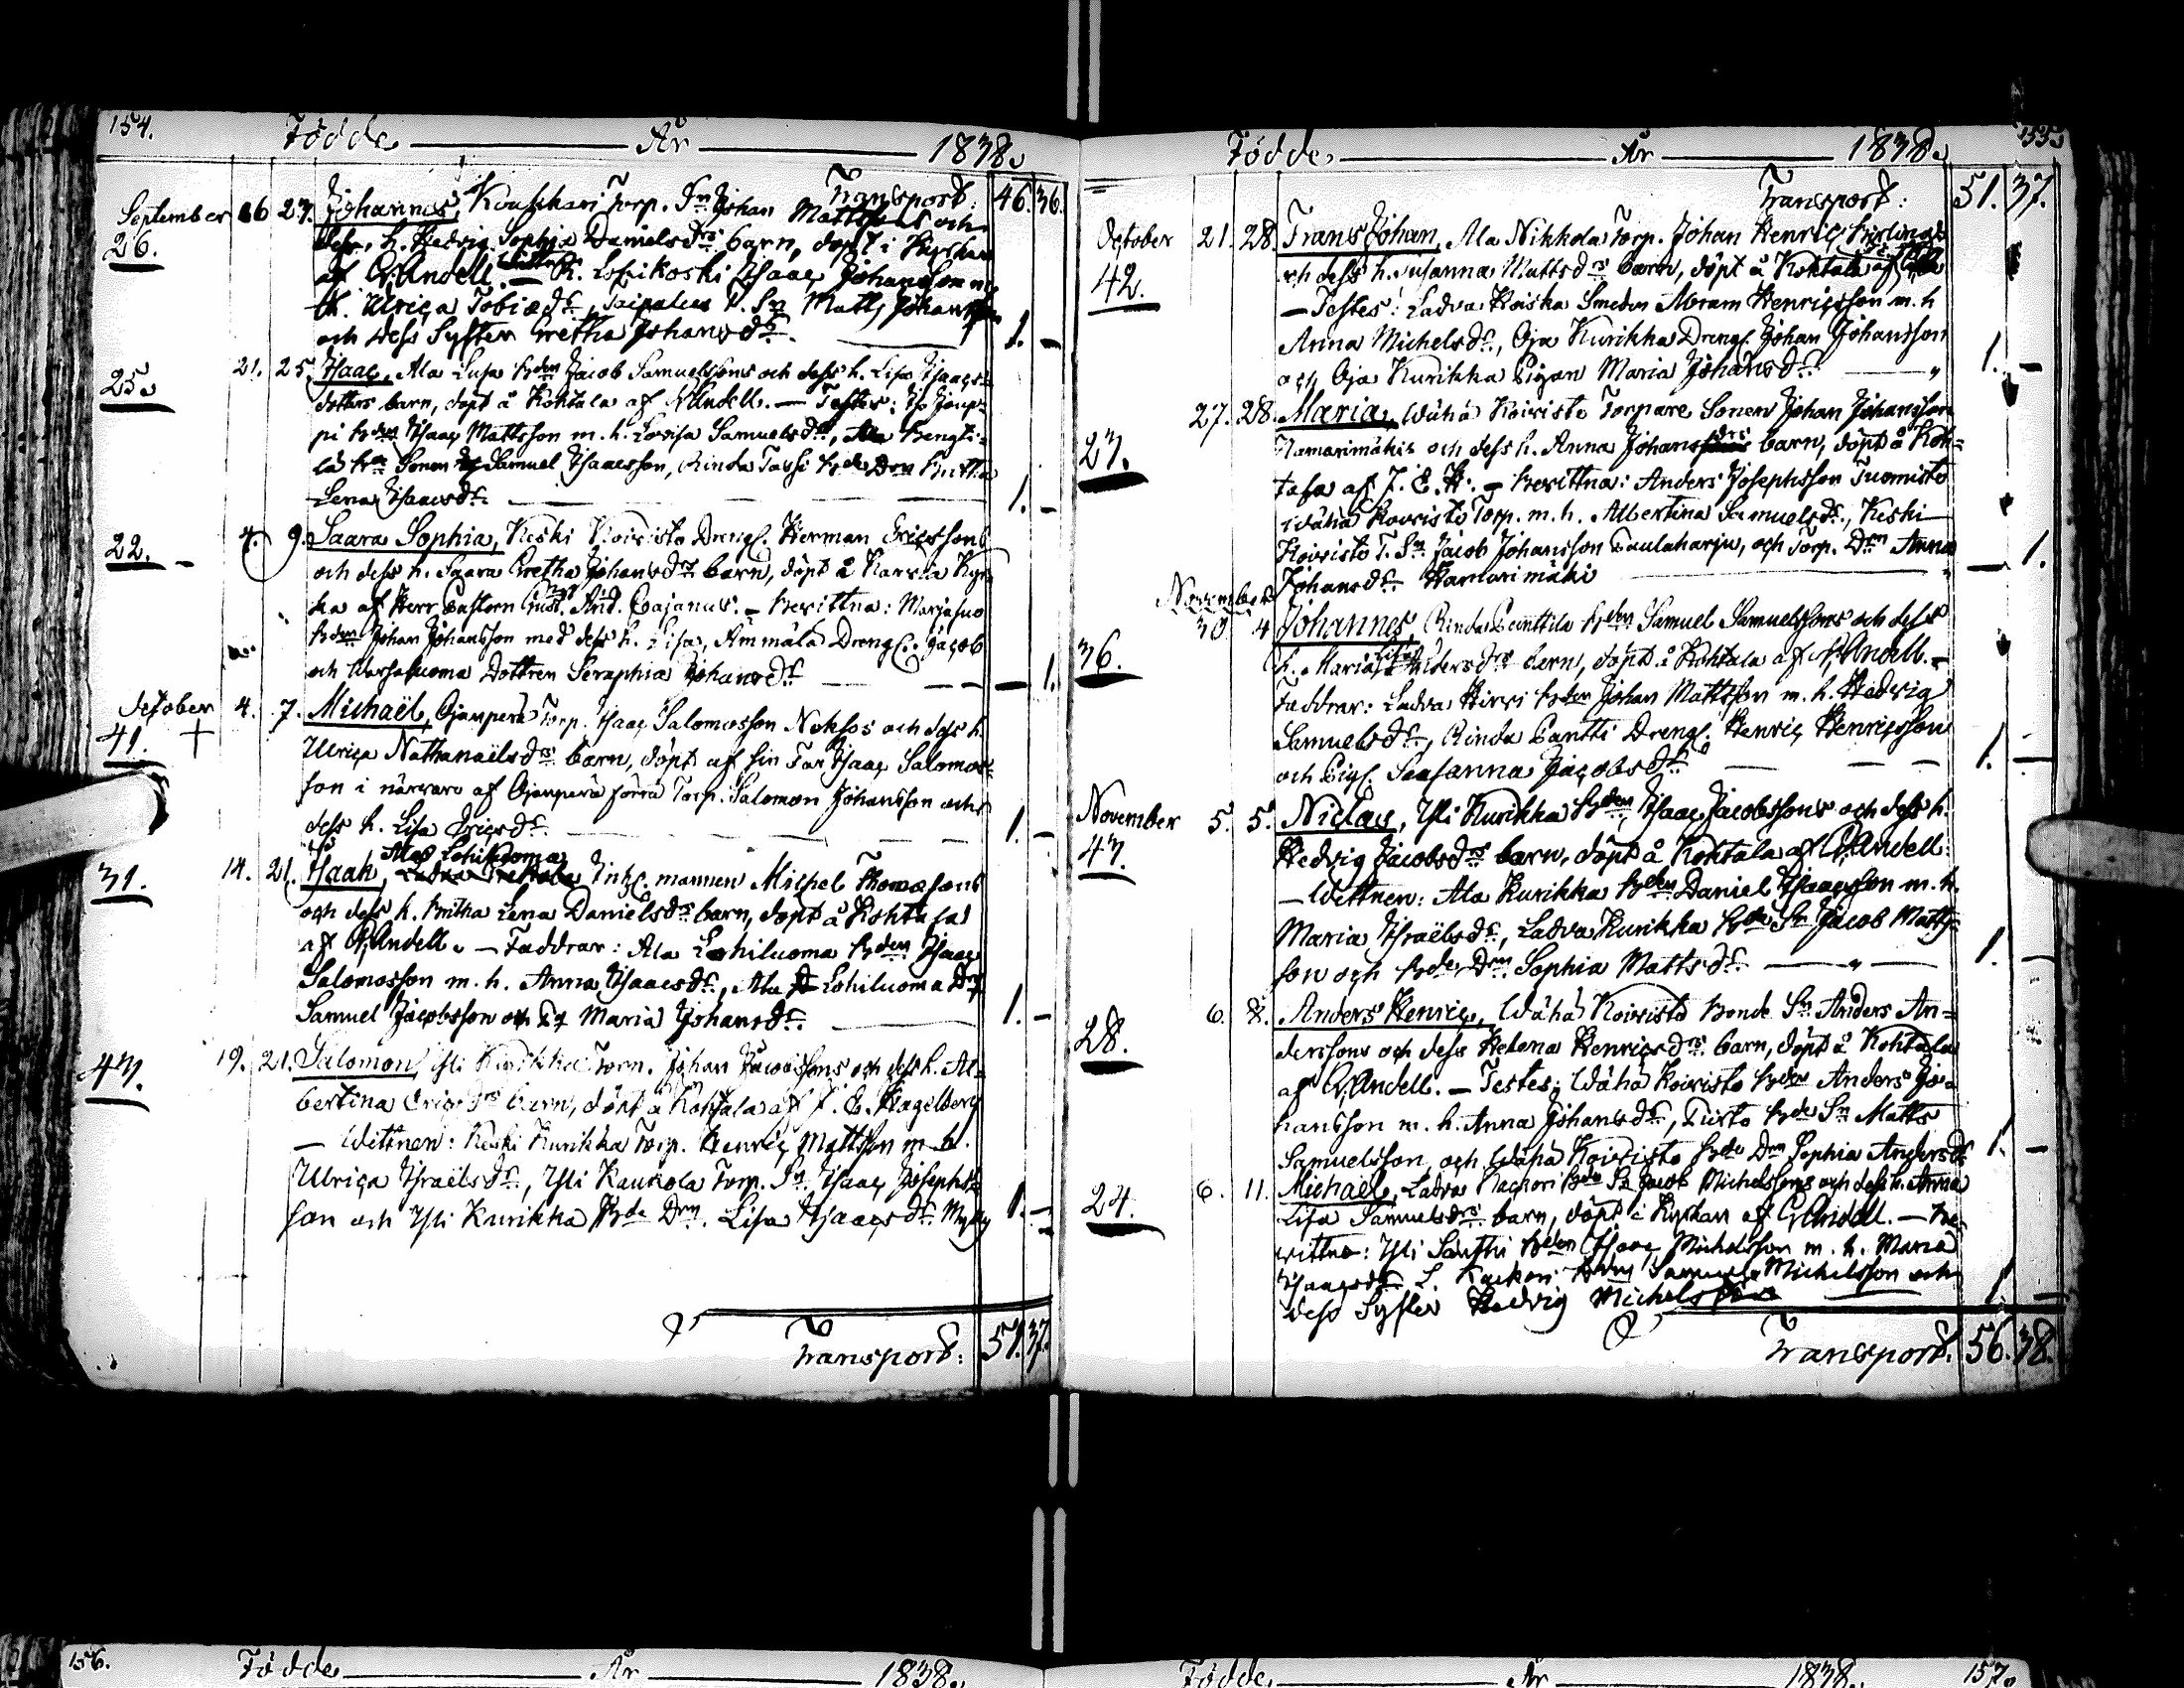 154. Födde År 1838.
Transport: 46. 36.
September 26 27. Johannes, Torp. Sn Johan Mattssons och
26. dess h. Hedvig Sophia Danielsdrs barn, döpt i Kyrkan
af G. Andell. — K. Isaac Johansson m.
h. Ulrica Tobiædr, T. Sn Matts Johansson
och dess Syster Gretha Johansdr. 1. —
25. 21. 25. Isaac, Ala Luopa Bden Jacob Samuelssons och dess h. Lisa Isaacs-
dotters barn, döpt å Kohtala af Andell. — Testes: Joup-
pi Bden Isaac Mattsson m. h. Lovisa Samuelsdr,
la Bn Sonen Samuel Isaacsson, Rinda Tassi Bde Drn
Lena Isaacsdr. 1. —
22. — 4. 9. Saara Sophia, Keski Koivisto Drengs. Herman Ericssons
och dess h. Saara Gretha Johansdrs barn, döpt å Karvia Kyr-
ka af Herr Pastorn Gust. And. Cajanus. — Bevittna: Marjaluo
Bden Johan Johansson med dess h. Lisa, Ämmälä Drengs. Jacob
och Warsaluoma Dottren Seraphia Johansdr — 1.
October 4. 7. Michaël, Ojanperä Torp. Isaac Salomosson Neksos och dess h.
41. + Ulrica Nathanaëlsdrs barn, döpt af sin Far Isaac Salomos-
son i närvaro af Ojanperä förra Torp. Salomon Johansson och
dess h. Lisa Ericsdr. 1. —
Ala Lohiluoma
31. 14. 21. Isaak, Inhs. mannen Michel Thomæsons
och dess h. Britha Lena Danielsdrs barn, döpt å Kohtala
af G. Andell. — Faddrar: Ala Lohiluoma Bden Isaac
Salomosson m. h. Anna Isaacsdr, Ala Lohiluoma Drg
Samuel Jacobsson och Pg Maria Johansdr. 1. —
47. 19. 21. Salomon, Yli Kurikka Torp. Johan Jacobssons och dess h. Al-
bertina Ericsdrs barn, döpt å Kohtala af J. E. Hagelberg
— Wittnen: Keski Kurikka Torp. Henric Mattsson m. h.
Ulrica Israëlsdr, Yli Kaukola Torp. Sn. Isaac Josephs-
son och Yli Kurikka Bde Drn. Lisa Isaacsdr. 1. —
Transport: 51. 37.
Födde, År 1838. 155.
Transport: 51. 37.
October 21. 28. Frans Johan, Ala Nikkola Torp. Johan Henric
42. och dess h. Susanna Mattsdrs barn, döpt å Kohtala af
— Testes: Ladva Koiska Smeden Abram Henricsson m. h
Anna Michelsdr, Oja Kurikka Drengs. Johan Johansson
och Oja Kurikka Pigan Maria Johansdr. 1. —
27. 27. 28. Maria, Wähä Koivisto Torpare Sonen Johan Johansson
Hamarimäkis och dess h. Anna Johansdrs barn, döpt å Koh-
tala af J. E. H. — Bevittna: Anders Josephsson Tuomisto
Wähä Koivisto Torp. m. h. Albertina Samuelsdr, Keski
Koivisto T. Sn Jacob Johansson Paulaharju, och Torp. Drn Anna
Johansdr Hamarimäki — 1.
November
36. 30 4 Johannes, Rinda Penttila Bden Samuel Samuelssons och dess
h. Maria Lisa Andersdrs barn, döpt å Kohtala af G. Andell. —
Faddrar: Ladva Hirvi Bden Johan Mattsson m. h. Hedvig
Samuelsdr, Rinda Pantti Drengs. Henric Henricsson
och Pigs. Susanna Jacobsdr 1. —
November 5. 5. Niclas, Yli Kurikka Bden, Isaac Jacobssons och dess h.
47. Hedvig Jacobsdrs barn, döpt å Kohtala af G. Andell.
— Wittnen: Ala Kurikka Bden Daniel Isaacsson m. h.
Maria Israëlsdr, Ladva Kurikka Bde Sn Jacob Matts-
son och Bde Drn Sophia Mattsdr. 1. —
28. 6. 8. Anders Henric, Wähä Koivisto Bonde Sn Anders An-
derssons och dess Helena Henricsdrs barn, döpt å Kohtala
af G. Andell. — Testes; Wähä Koivisto Bden Anders Jo-
hansson m. h. Anna Johansdr, Bde Sn Matts
Samuelsson, och Wähä Koivisto Bde Drn Sophia Andersdr 1. —
24. 6. 11. Michaël, Ladva Bde Sn Jacob Michelssons och dess h. Anna
Lisa Samuelsdrs barn, döpt i Kyrkan af G. Andell. — Be-
vittna: Yli Bden Isaac Michelsson m. h. Maria
Isaacsdr L. Samuel Michelsson och
dess Syster Hedvig 1 —
Transport. 56. 38.
156. Födde År 1838.
Födde, År 1838. 157.